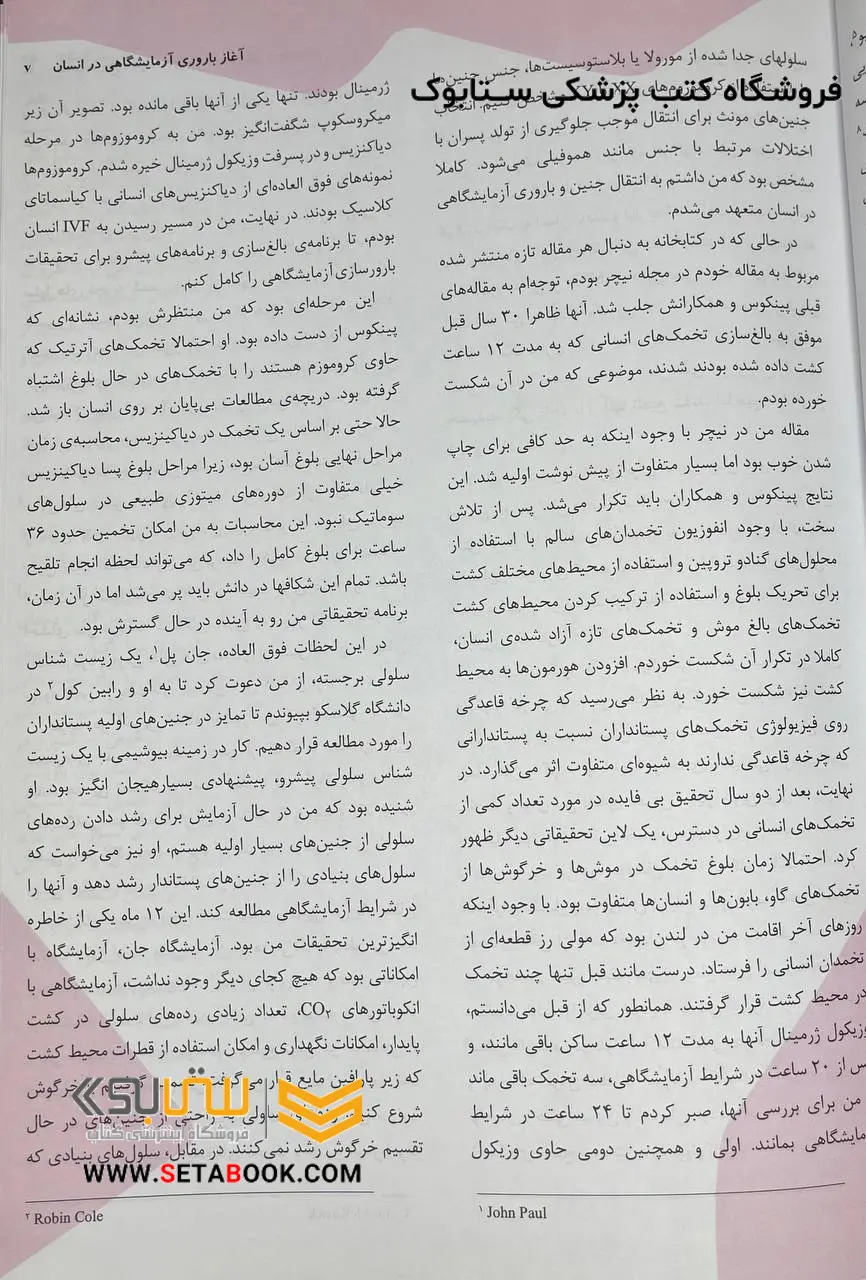 آغاز باروری آزمایشگاهی در انسان ۷
فروشگاه کتب پزشکی ستابوک
سلولهای جدا شده از مورولا یا بلاستوسیست‌ها، جنس جنین‌ها
جنین‌های مونث برای انتقال موجب جلوگیری از تولد پسران با
اختلالات مرتبط با جنس مانند هموفیلی می‌شود. کاملا
مشخص بود که من داشتم به انتقال جنین و باروری آزمایشگاهی
در انسان متعهد می‌شدم.
در حالی که در کتابخانه به دنبال هر مقاله تازه منتشر شده
مربوط به مقاله خودم در مجله نیچر بودم، توجه‌ام به مقاله‌های
قبلی پینکوس و همکارانش جلب شد. آنها ظاهرا ۳۰ سال قبل
موفق به بالغ‌سازی تخمک‌های انسانی که به مدت ۱۲ ساعت
کشت داده شده بودند شدند، موضوعی که من در آن شکست
خورده بودم.
مقاله من در نیچر با وجود اینکه به حد کافی برای چاپ
شدن خوب بود اما بسیار متفاوت از پیش نوشت اولیه شد. این
نتایج پینکوس و همکاران باید تکرار می‌شد. پس از تلاش
سخت، با وجود انفوزیون تخمدان‌های سالم با استفاده از
محلول‌های گنادو تروپین و استفاده از محیط‌های مختلف کشت
برای تحریک بلوغ و استفاده از ترکیب کردن محیط‌های کشت
تخمک‌های بالغ موش و تخمک‌های تازه آزاد شده‌ی انسان،
کاملا در تکرار آن شکست خوردم. افزودن هورمون‌ها به محیط
کشت نیز شکست خورد. به نظر می‌رسید که چرخه قاعدگی
روی فیزیولوژی تخمک‌های پستانداران نسبت به پستاندارانی
که چرخه قاعدگی ندارند به شیوه‌ای متفاوت اثر می‌گذارد. در
نهایت، بعد از دو سال تحقیق بی فایده در مورد تعداد کمی از
تخمک‌های انسانی در دسترس، یک لاین تحقیقاتی دیگر ظهور
کرد. احتمالا زمان بلوغ تخمک در موش‌ها و خرگوش‌ها از
تخمک‌های گاو، بابون‌ها و انسان‌ها متفاوت بود. با وجود اینکه
روزهای آخر اقامت من در لندن بود که مولی رز قطعه‌ای از
تخمدان انسانی را فرستاد. درست مانند قبل تنها چند تخمک
در محیط کشت قرار گرفتند. همانطور که از قبل می‌دانستم،
وزیکول ژرمینال آنها به مدت ۱۲ ساعت ساکن باقی مانند، و
س از ۲۰ ساعت در شرایط آزمایشگاهی، سه تخمک باقی ماند
من برای بررسی آنها، صبر کردم تا ۲۴ ساعت در شرایط
مایشگاهی بمانند. اولی و همچنین دومی حاوی وزیکول
۱ John Paul
ژرمینال بودند. تنها یکی از آنها باقی مانده بود. تصویر آن زیر
میکروسکوپ شگفت‌انگیز بود. من به کروموزوم‌ها در مرحله
دیاکنزیس و در پسرفت وزیکول ژرمینال خیره شدم. کروموزوم‌ها
نمونه‌های فوق العاده‌ای از دیاکنزیس‌های انسانی با کیاسماتای
کلاسیک بودند. در نهایت، من در مسیر رسیدن به IVF انسان
بودم، تا برنامه‌ی بالغ‌سازی و برنامه‌های پیشرو برای تحقیقات
بارورسازی آزمایشگاهی را کامل کنم.
این مرحله‌ای بود که من منتظرش بودم، نشانه‌ای که
پینکوس از دست داده بود. او احتمالا تخمک‌های آترتیک که
حاوی کروموزم هستند را با تخمک‌های در حال بلوغ اشتباه
گرفته بود. دریچه‌ی مطالعات بی‌پایان بر روی انسان باز شد.
حالا حتی بر اساس یک تخمک در دیاکنیزیس، محاسبه‌ی زمان
مراحل نهایی بلوغ آسان بود، زیرا مراحل بلوغ پسا دیاکنیزیس
خیلی متفاوت از دوره‌های میتوزی طبیعی در سلول‌های
سوماتیک نبود. این محاسبات به من امکان تخمین حدود ۳۶
ساعت برای بلوغ کامل را داد، که می‌تواند لحظه انجام تلقیح
باشد. تمام این شکافها در دانش باید پر می‌شد اما در آن زمان،
برنامه تحقیقاتی من رو به آینده در حال گسترش بود.
در این لحظات فوق العاده، جان پل۱، یک زیست شناس
سلولی برجسته، از من دعوت کرد تا به او و رابین کول۲ در
دانشگاه گلاسکو بپیوندم تا تمایز در جنین‌های اولیه پستانداران
را مورد مطالعه قرار دهیم. کار در زمینه بیوشیمی با یک زیست
شناس سلولی پیشرو، پیشنهادی بسیارهیجان انگیز بود. او
شنیده بود که من در حال آزمایش برای رشد دادن رده‌های
سلولی از جنین‌های بسیار اولیه هستم، او نیز می‌خواست که
سلول‌های بنیادی را از جنین‌های پستاندار رشد دهد و آنها را
در شرایط آزمایشگاهی مطالعه کند. این ۱۲ ماه یکی از خاطره
انگیزترین تحقیقات من بود. آزمایشگاه جان، آزمایشگاه با
امکاناتی بود که هیچ کجای دیگر وجود نداشت، آزمایشگاهی با
انکوباتورهای CO۲، تعداد زیادی رده‌های سلولی در کشت
پایدار، امکانات نگهداری و امکان استفاده از قطرات محیط کشت
که زیر پارافین مایع قرار می‌گرفت خرگوش
شروع کنیم جنین‌های در حال
تقسیم خرگوش رشد نمی‌کنند. در مقابل، سلول‌های بنیادی که
ستابوک
فروشگاه اینترنتی کتاب
WWW.SETABOOK.COM
۲ Robin Cole